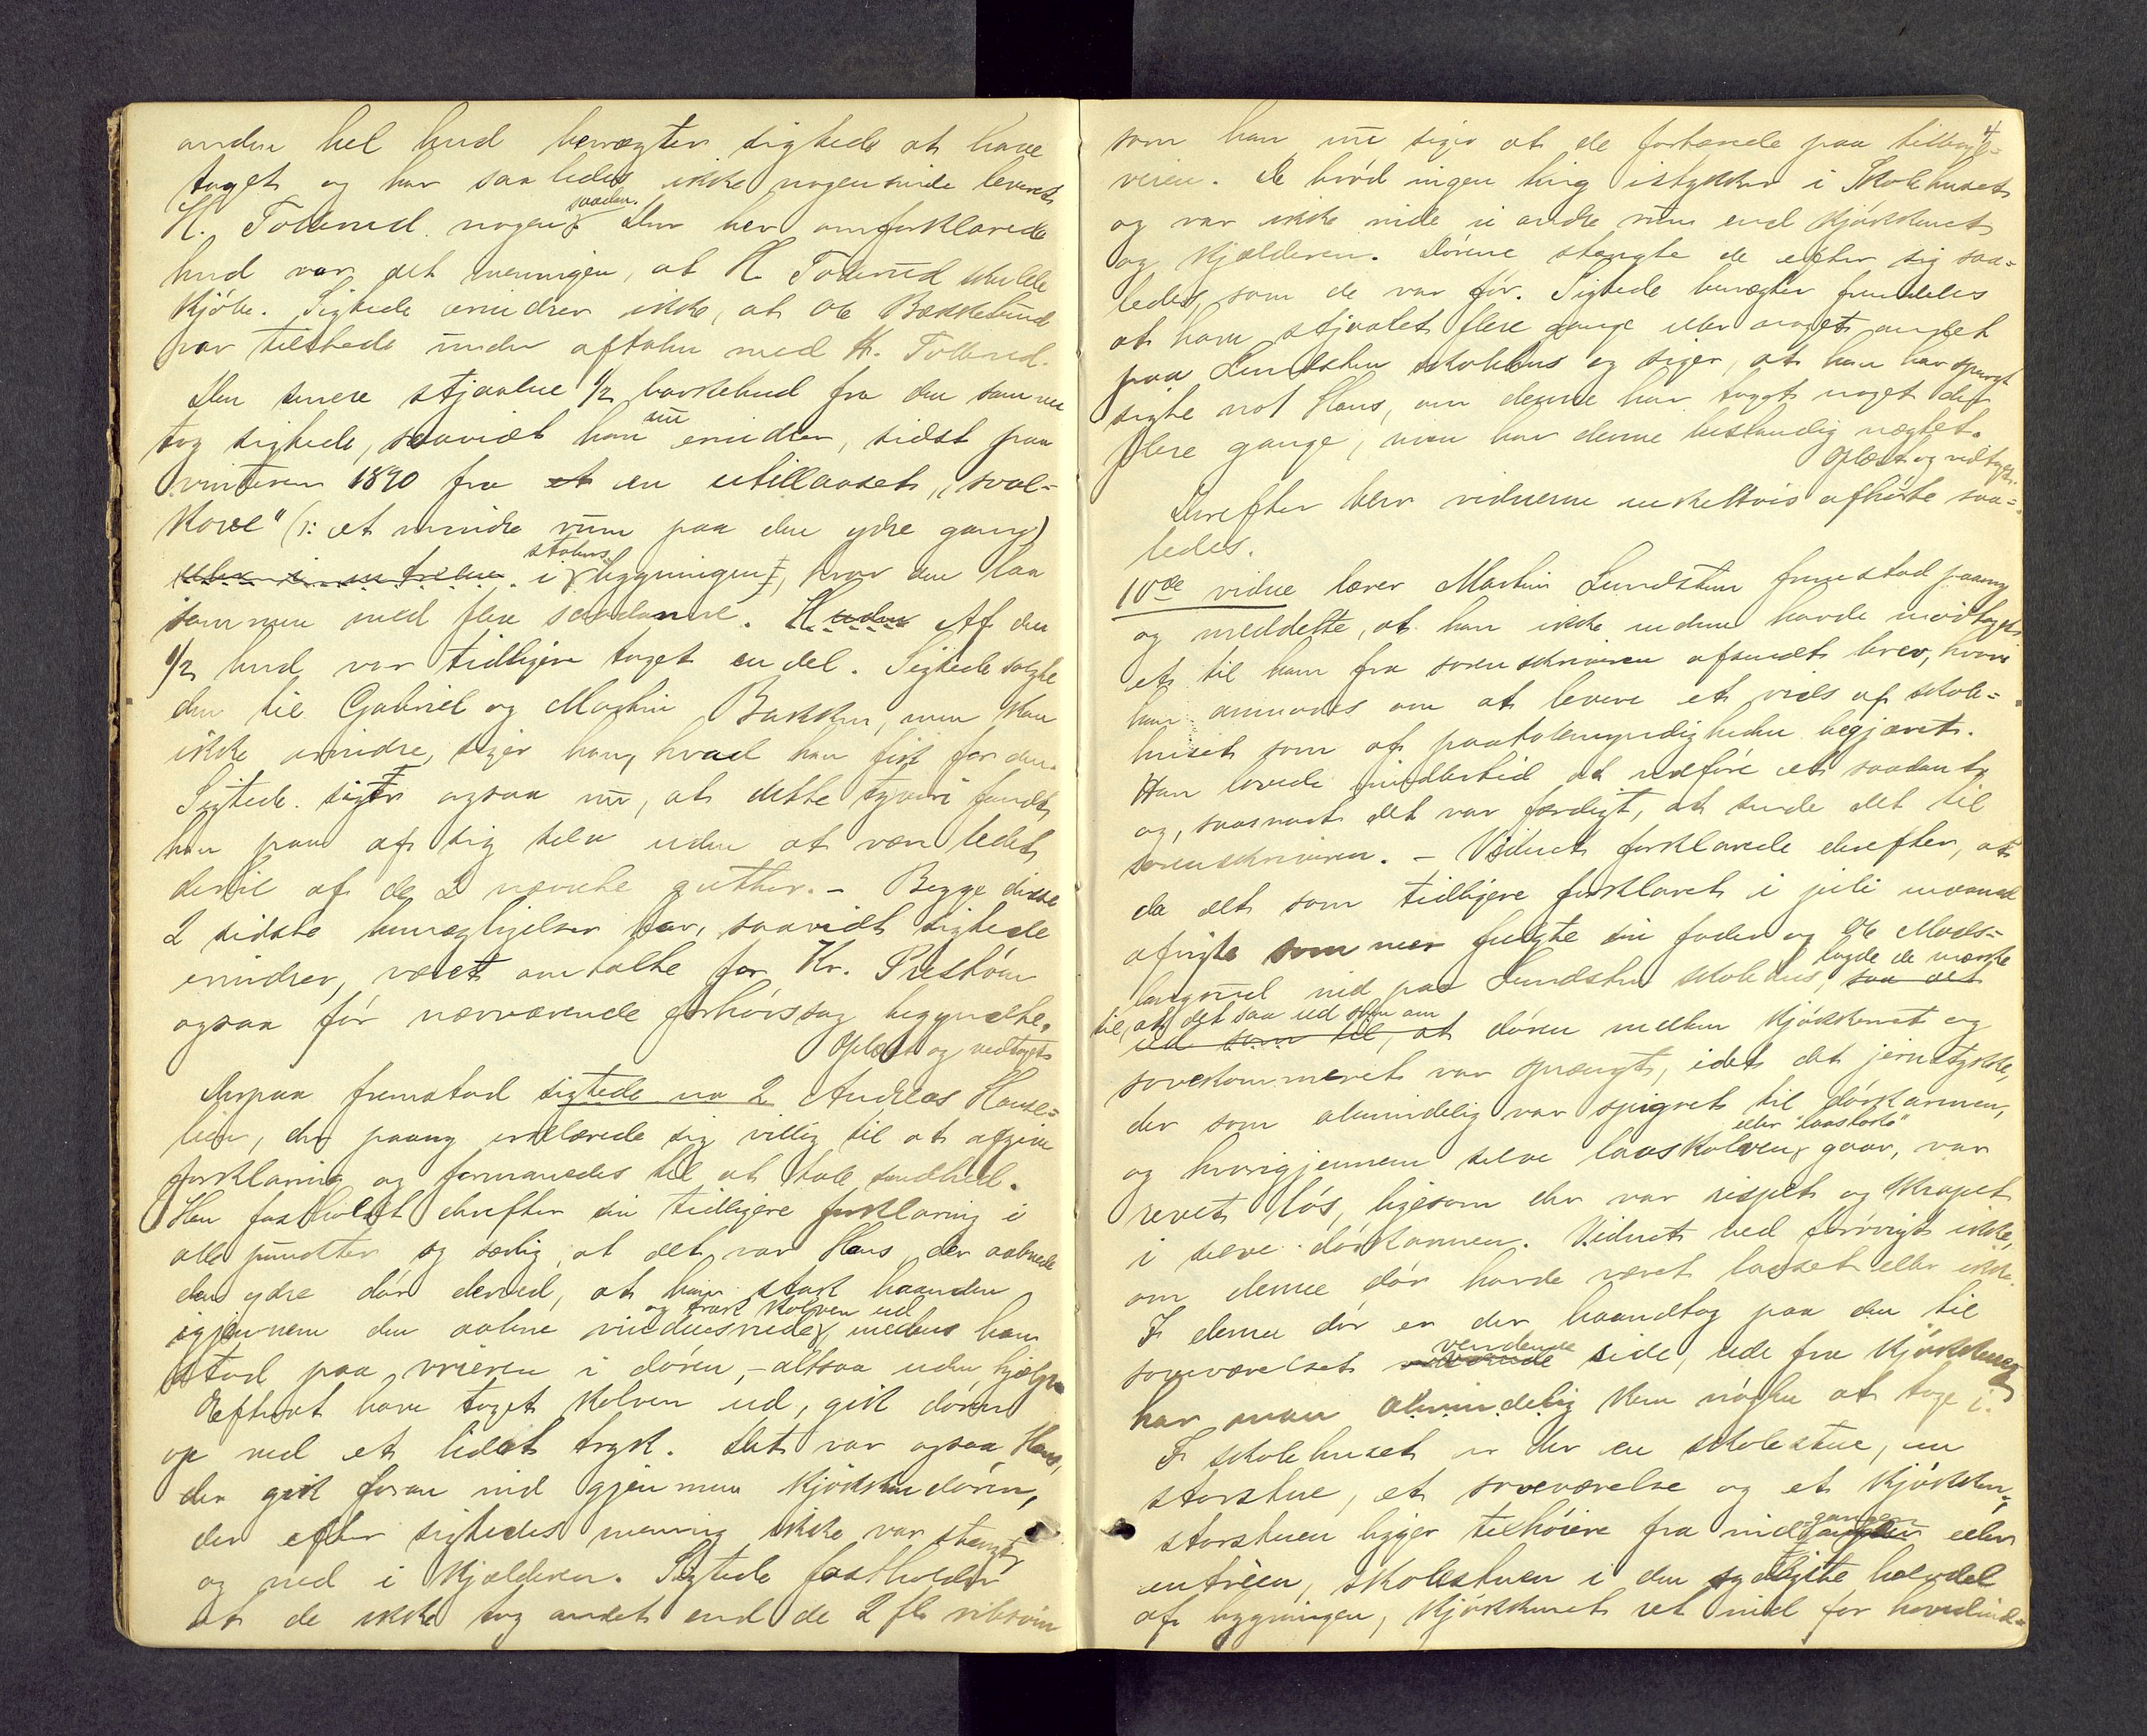 anden hel hud benægter sigtede at have
taget og har saaledes ikke nogensinde leveret
H. Tollerud nogen saadan. Den her omforklarede
hud var det meningen, at H. Tollerud skulde
kjøbe. Sigtede erindrer ikke, at Ole Bakkelund
var tilstede under aftalen med H. Tollerud.
Den senere stjaalne 1/2 barkehud fra den samme
tog sigtede, saavidt han nu erindrer, sidst paa
vinteren 1890 fra et en utillaaset, "sval-
kove" (: et mindre rum paa den ydre gang)
eller i en i stabursbygningen, hvor den laa
sammen med flere saadanne. Huden Af den
1/2 hud var tidligere taget en del. Sigtede solgte
den til Gabriel og Martin Bakken, men kan
ikke erindre, siger han, hvad han fik for den.
Sigtede siger ogsaa nu, at dette tyveri fandt
han paa af sig selv uden at være ledet
dertil af de 2 nævnte gutter. - Begge disse
2 sidste benægtelser har, saavidt sigtede
erindrer, været omtalte for Kr. Prestøen
ogsaa før nærværende forhørssag begyndte.
Oplæst og vedtaget
Derpaa fremstod sigtede no 2 Andreas Hanse-
lien, der paany erklærede sig villig til at afgive
forklaring og formanedes til at tale sandhed.
Han fastholdt derefter sin tidligere forklaring i
alle punkter og særlig, at det var Hans, der aabnede
den ydre dør derved, at han stak haanden
igjennem den aabne vinduesrude og trak kolven ud, medens han
stod paa vrieren i døren, - altsaa uden hjælp.
Efterat have taget kolven ud, gik døren
op ved et lidet tryk. Det var ogsaa Hans,
der gik foran ind gjennem kjøkkendøren,
der efter sigtedes mening ikke var stængt,
og ned i kjælderen. Sigtede fastholder
at de ikke tog andet end de 2 fl. ribsvin
4
som han nu siger at de fortærede paa tilbage-
veien. De brød ingen ting istykker i Skolehuset
og var ikke inde i andre rum end kjøkkenet
og kjælderen. Dørene stængte de efter sig saa-
ledes, som de var før. Sigtede benægter fremdeles
at have stjaalet flere gange eller noget andet
paa Lundsten skolehus og siger, at han har spurgt
sigtede no 1 Hans, om denne har taget noget der
flere gange, men har denne bestandig nægtet.
Oplæst og vedtaget.
Derefter blev vidnerne enkeltvis afhørte saa-
ledes.
10de vidne lærer Martin Lundsten fremstod paany
og meddelte, at han ikke endnu havde modtaget
et til ham fra sorenskriveren afsendt brev, hvori
han anmodes om at levere et rids af skole-
huset som af paatalemyndigheden begjæret.
Han lovede imidlertid at udføre et saadant
og, saasnart det var færdigt, at sende det til
sorenskriveren. - Vidnet forklarede derefter, at
da det som tidligere forklaret i juli maaned
afvigte sommer fulgte sin fader og Ole Mads-
langrud ind paa Lundsten skolehus, saa det lagde de mærke
til, at det saa ud som om ud som til, at døren mellem kjøkkenet og
sovekammeret var sprængt, idet det jernstykke,
der som almindelig var spigret til dørkarmen,
og hvorigjennem selve laaskolven eller "laaskole" gaar, var
revet løs, ligesom der var rispet og skrapet
i selve dørkarmen. Vidnet ved forøvrigt ikke,
om denne dør havde været laaset eller ikke.
I denne dør er der haandtag paa den til
soveværelset værende vendende side, ude fra kjøkkenet
har man almindelig kun nøglen at tage i.
I skolehuset er der en skolestue, en
storstue, et soveværelse og et kjøkken;
storstuen ligger tilhøire fra indgangen eller
entréen, skolestuen i den sydligste halvdel
af bygningen, kjøkkenet ret ind for hovedind-